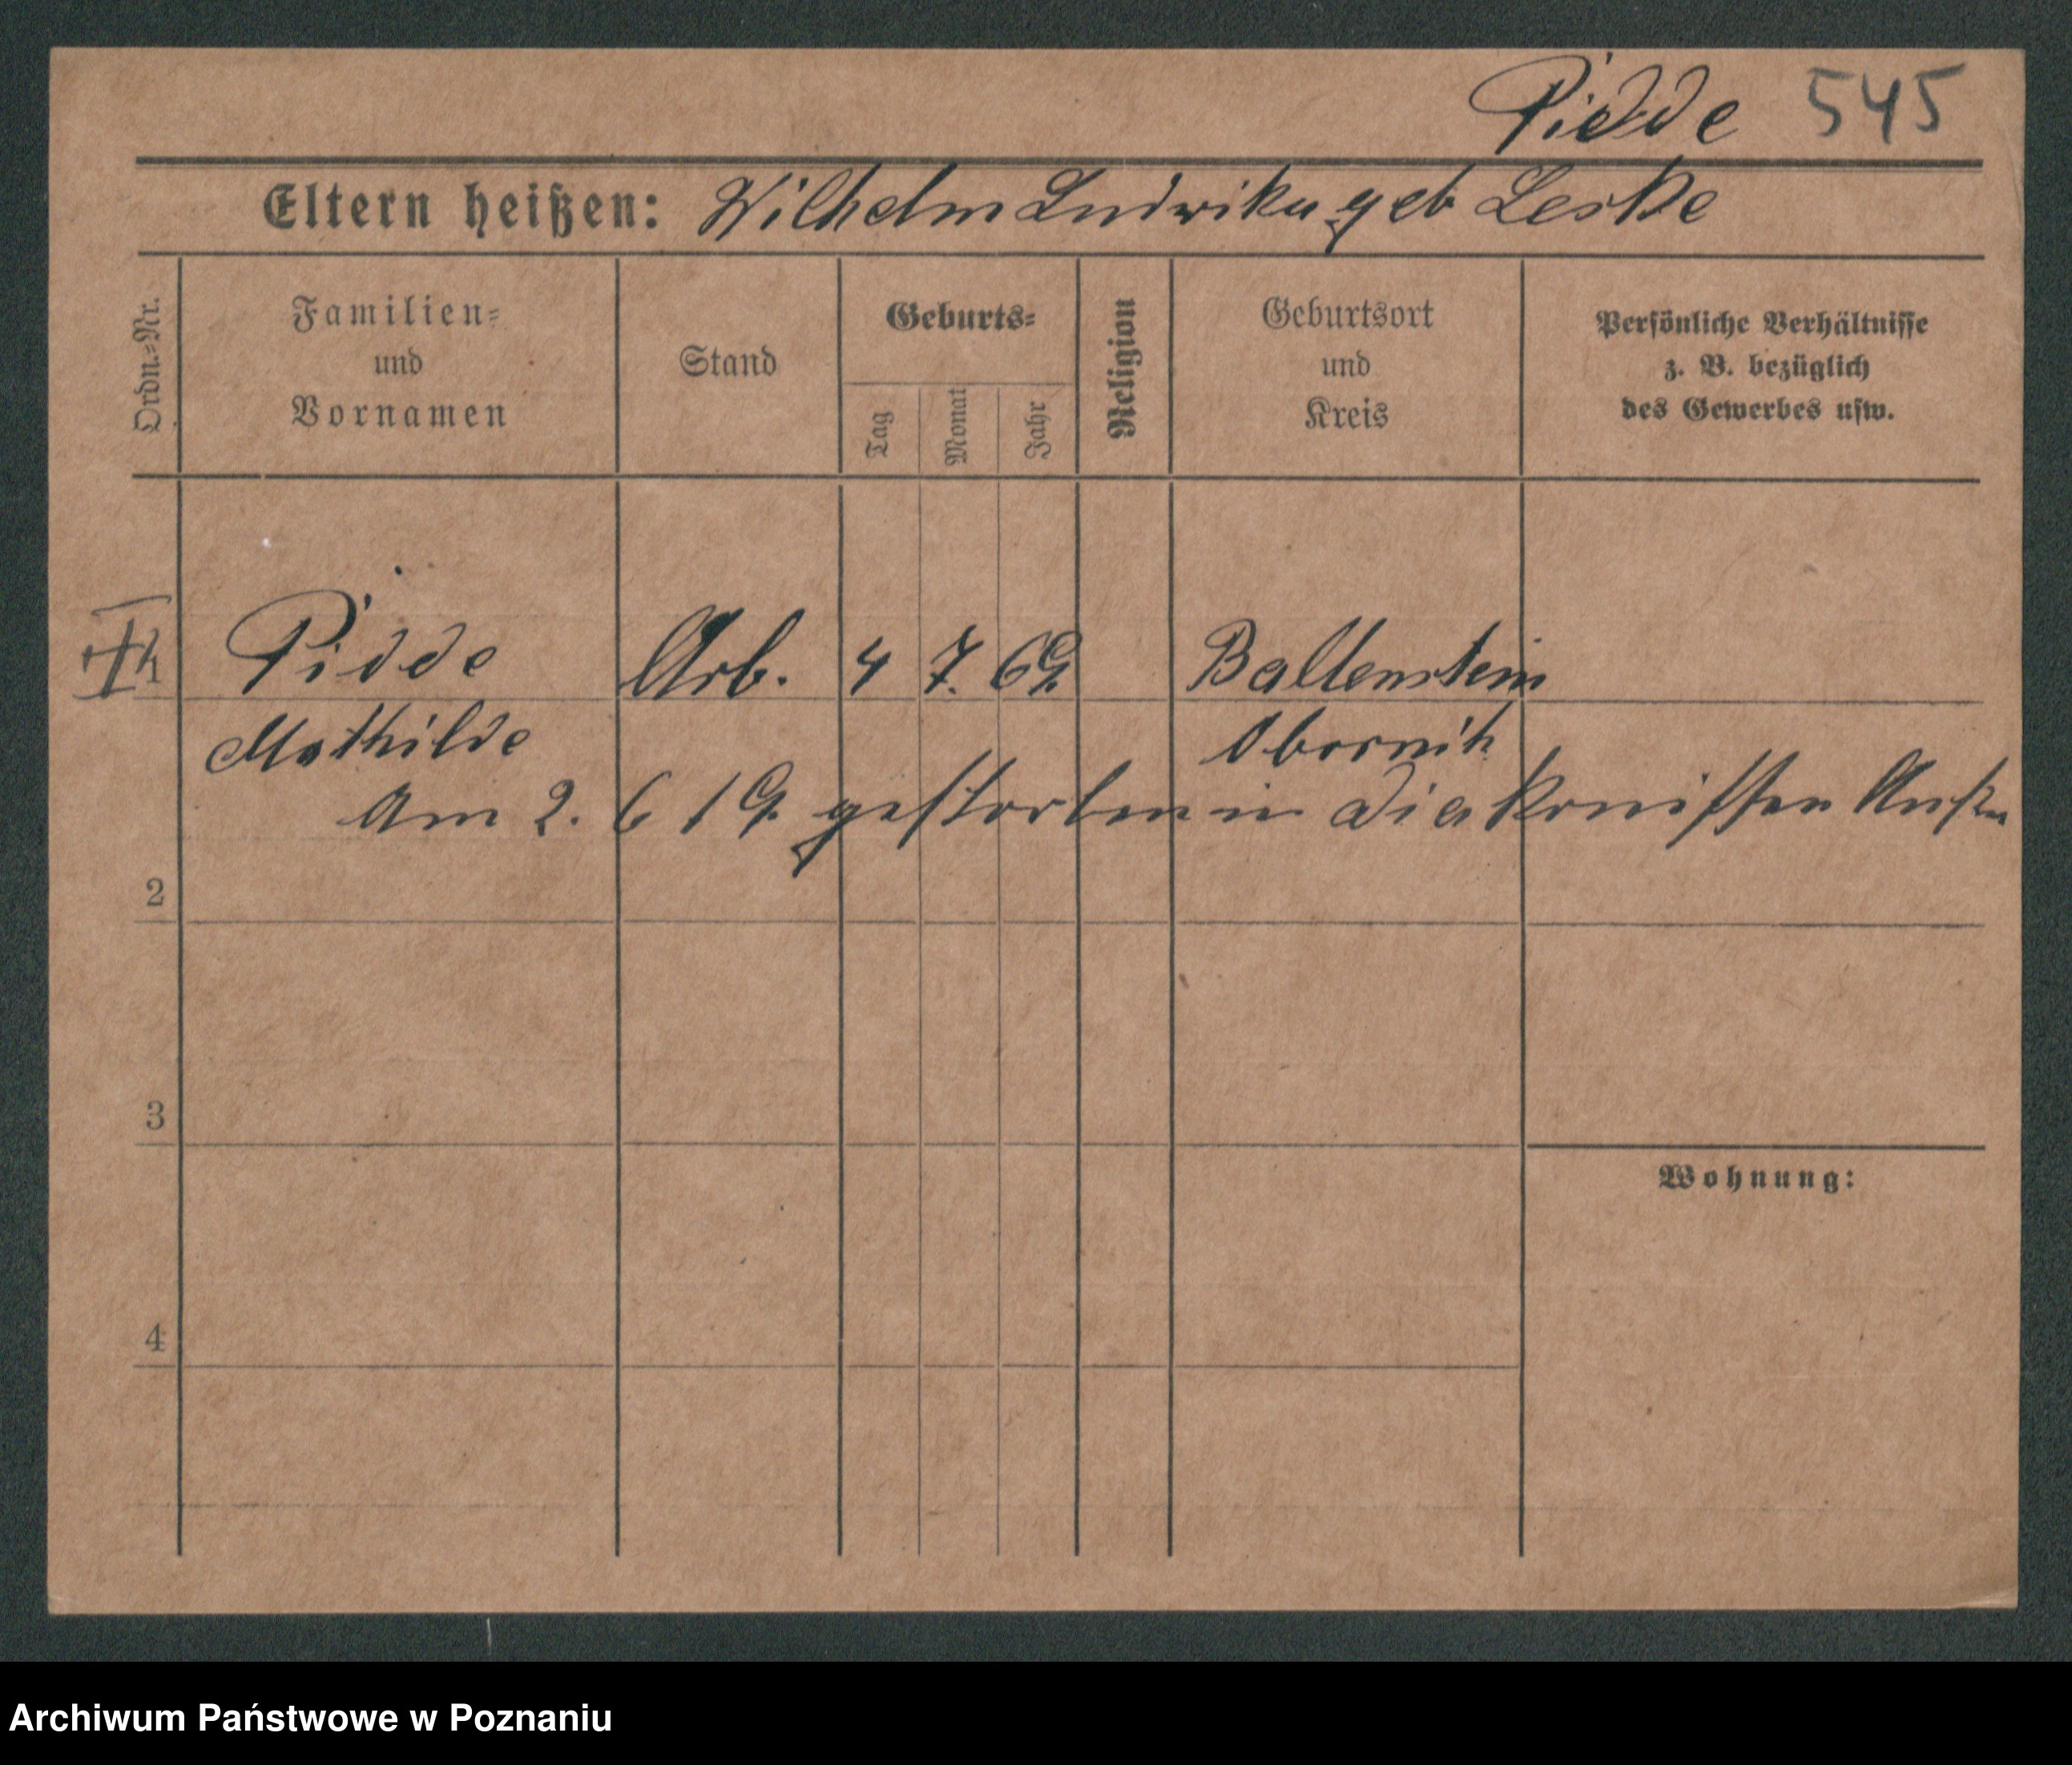 Pidde 545
Eltern heißen: Wilhelm Ludwika geb Leske
Ordn.-Nr.
Familien-
und
Vornamen
Stand
Geburts-
Tag
Monat
Jahr
Religion
Geburtsort
und
Kreis
Persönliche Verhältnisse
z. B. bezüglich
des Gewerbes usw.
Pidde Arb. 4 7. 69 Ballenstein
Mathilde Obornik
Am 2. 6 19. gestorben in Diakonissen
2
3
Wohnung:
4
Archiwum Państwowe w Poznaniu